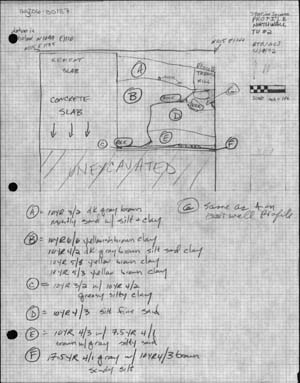 PROFILE
NORTH WALL
TU #2
CEMENT
SLAB
CONCRETE
SLAB
A
B
D
E
C
F
G
UNEXCAVATED
G Same as A on
east wall Profile
A = 10YR 3/2 dk gray brown
mottly sand w/ silt + clay
B = 10YR 6/6 yellowish brown clay
10YR 4/2 dk gray brown silt sand clay
10YR 5/8 yellow brown clay
10YR 5/3 yellow brown clay
C = 10YR 3/2 w/ 10YR 4/2
greasy silty clay
D = 10YR 4/3 silt fine sand
E = 10YR 4/3 w/ 7.5YR 4/1
brown w/ gray silty sand
F 7.5YR 4/1 gray w/ 10YR 4/3 brown
sandy silt